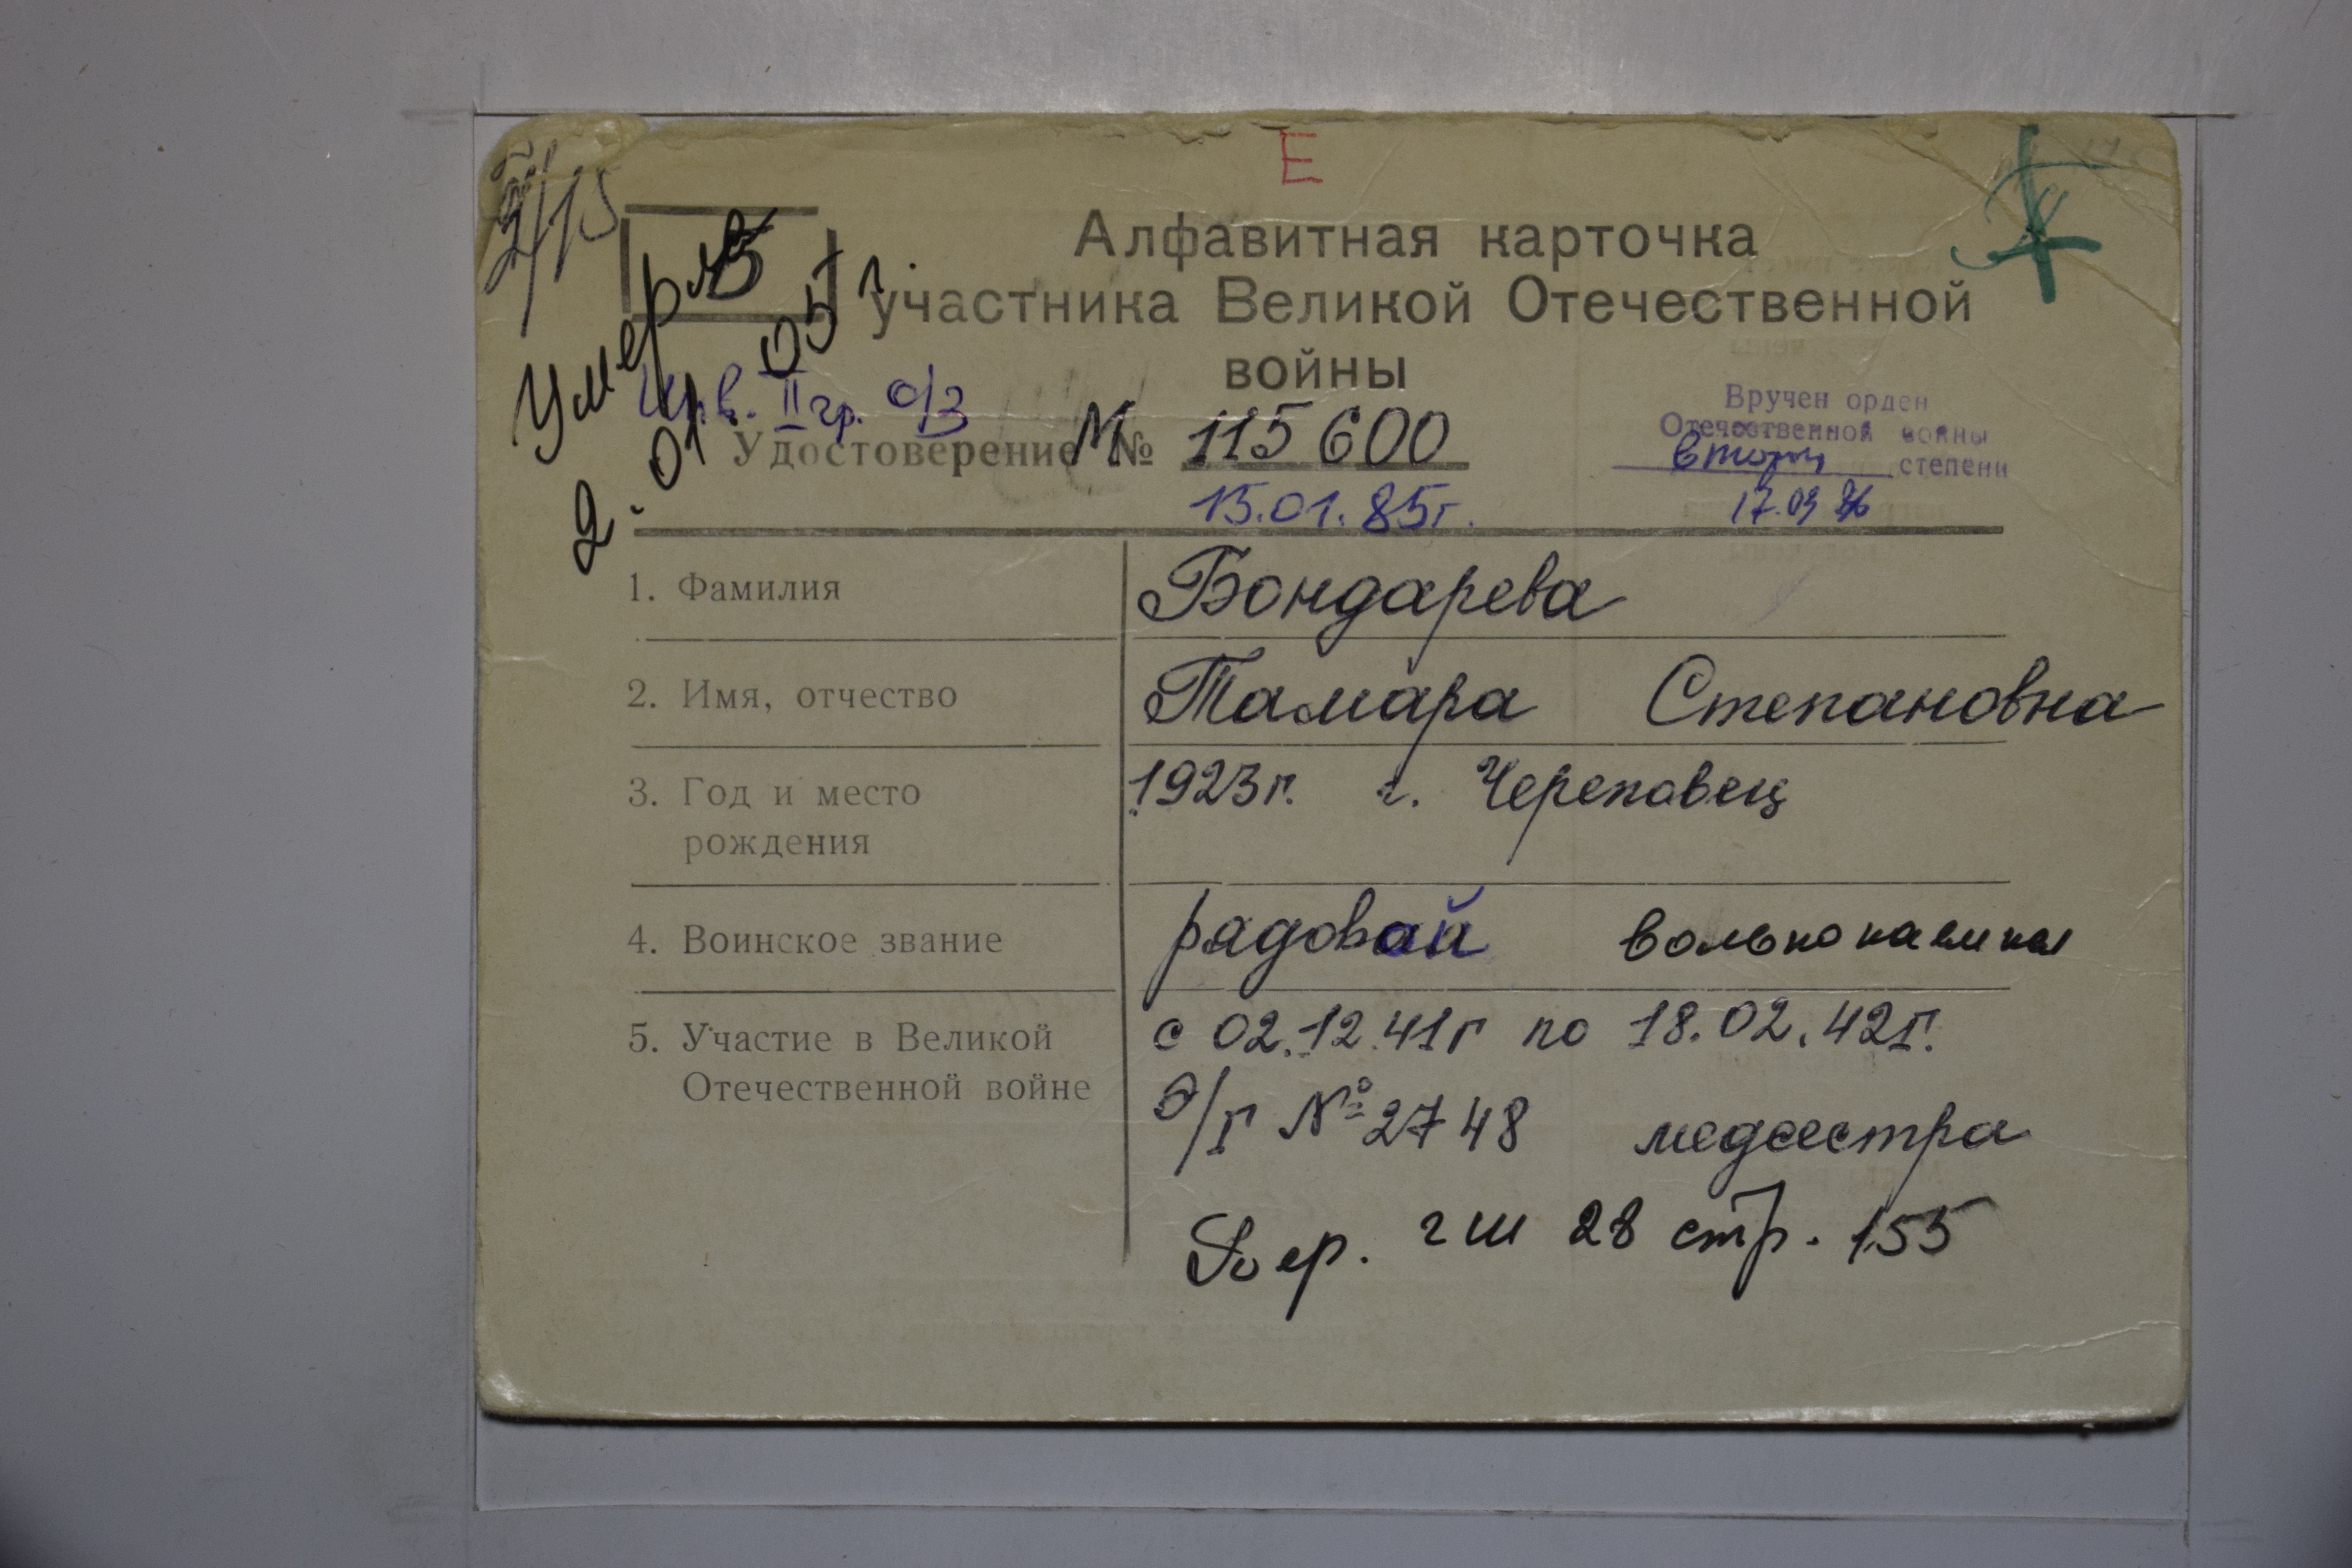 Е
2/15
Б
Умерла
2.01.05г.
Алфавитная карточка
участника Великой Отечественной
войны
Инв. II гр. о/з
Удостоверение М № 115600
15.01.85г.
Вручен орден
Отечественной войны
второй степени
17.03 86
1. Фамилия Бондарева
2. Имя, отчество Тамара Степановна
3. Год и место 1923г. г. Череповец
рождения
4. Воинское звание рядовой вольнонаемная
5. Участие в Великой с 02.12.41г по 18.02.42г.
Отечественной войне Э/Г № 2748 медсестра
гш 28 стр. 155